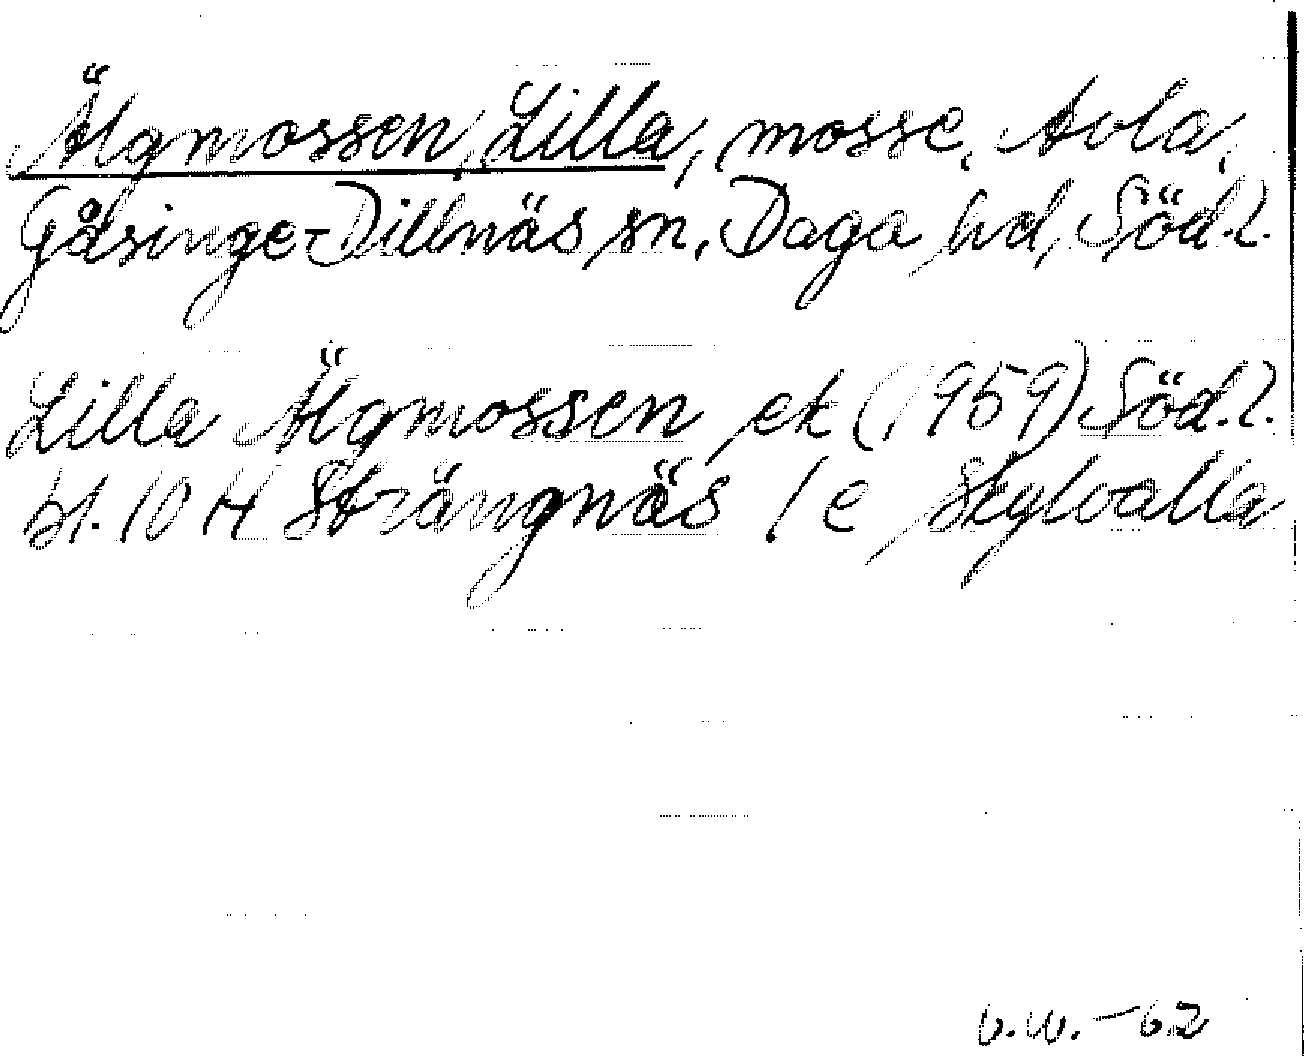 Älgmossen, Lilla, mosse, Avla,
Gåsinge-Dillnäs sn, Daga hd, Söd.l.
Lilla Älgmossen ek (1959) Söd.l.
bl. 10 H Strängnäs 1 e Skylvalla
V.W. -62